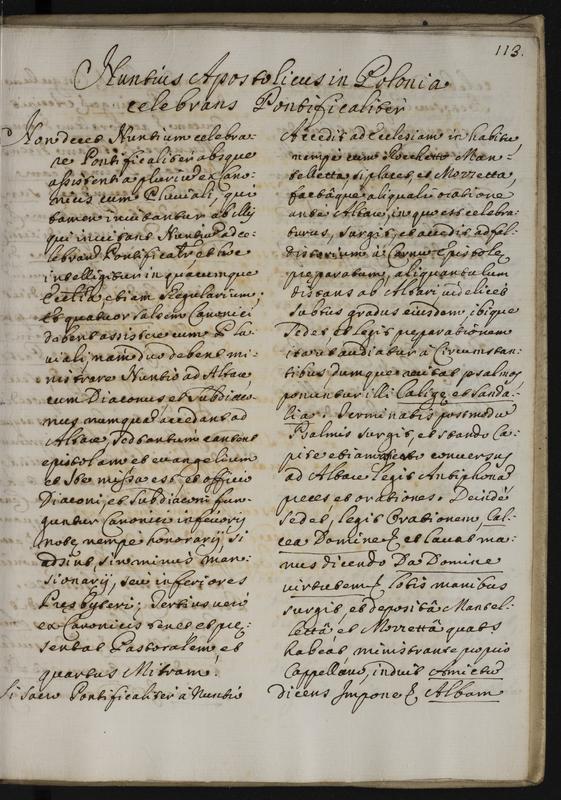 113.
Nuntius Apostolicus in Polonia
celebrans Pontificaliter
Non decet Nuntium celebra-
re Pontificaliter absque
assistentia plurium Cano-
nicus cum Pluviali, qui
tamen invitantur ab illis
qui invitant Nuntium ad ce-
lebrand. Pontificalr et hoc
intelligitur in quacumque
Ecclia etiam Regularium;
Et quatuor saltem Canonici
debent assistere cum Plu-
viali, nam duo debent mi-
nistrare Nuntio ad Altare,
cum Diaconus, et Subdiaco-
nus numquã accedant ad
Altare, sed tantum cantent
epistolam et evangelium
et Ste missa est, et officio
Diaconi, et Subdiaconi fun-
guntur Canonici inferioris
notę, nempe honorarij, si
adsint, sin minus Man-
sionarij, seu inferiores
Presbyteri; Tertius verò
ex Canonicis tenet et pre-
sentat Pastoralem, et
quartus Mitram.
Si sacrũ Pontificaliter à Nuntio
Accedit ad Ecclesiam in habitu,
nempe cum Rocchetto Man-
telletta, si placet, et Mozzetta,
factâque aliquali oratione
ante Altare, in quo est celebra-
turus, surgit, et accedit ad fal-
distorium à Cornu Epistolę
preparatum, aliquantulum
distans ab Altari videlicet
subtus gradus eiusdem, ibique
sedet, et legit preparationem
ita ut audiatur à Circumstan-
tibus, dumque recitat psalmos
ponuntur illi Caligę et Sanda-
lia. Terminatis postmodũ
Psalmis surgit, et stando Ca-
pite etiam conversus
ad Altare legit Antiphonã
preces et orationes. Deinde
sedet, legit Orationem, Cal-
cea Domine &, et lavat ma-
nus dicendo Da Domine
virtutem & Lotis manibus
surgit, et depositâ Mantel-
lettâ et Mozzettâ quat.s
habeat ministrante proprio
Cappellano, induit Amictũ
dicens Impone & Albam